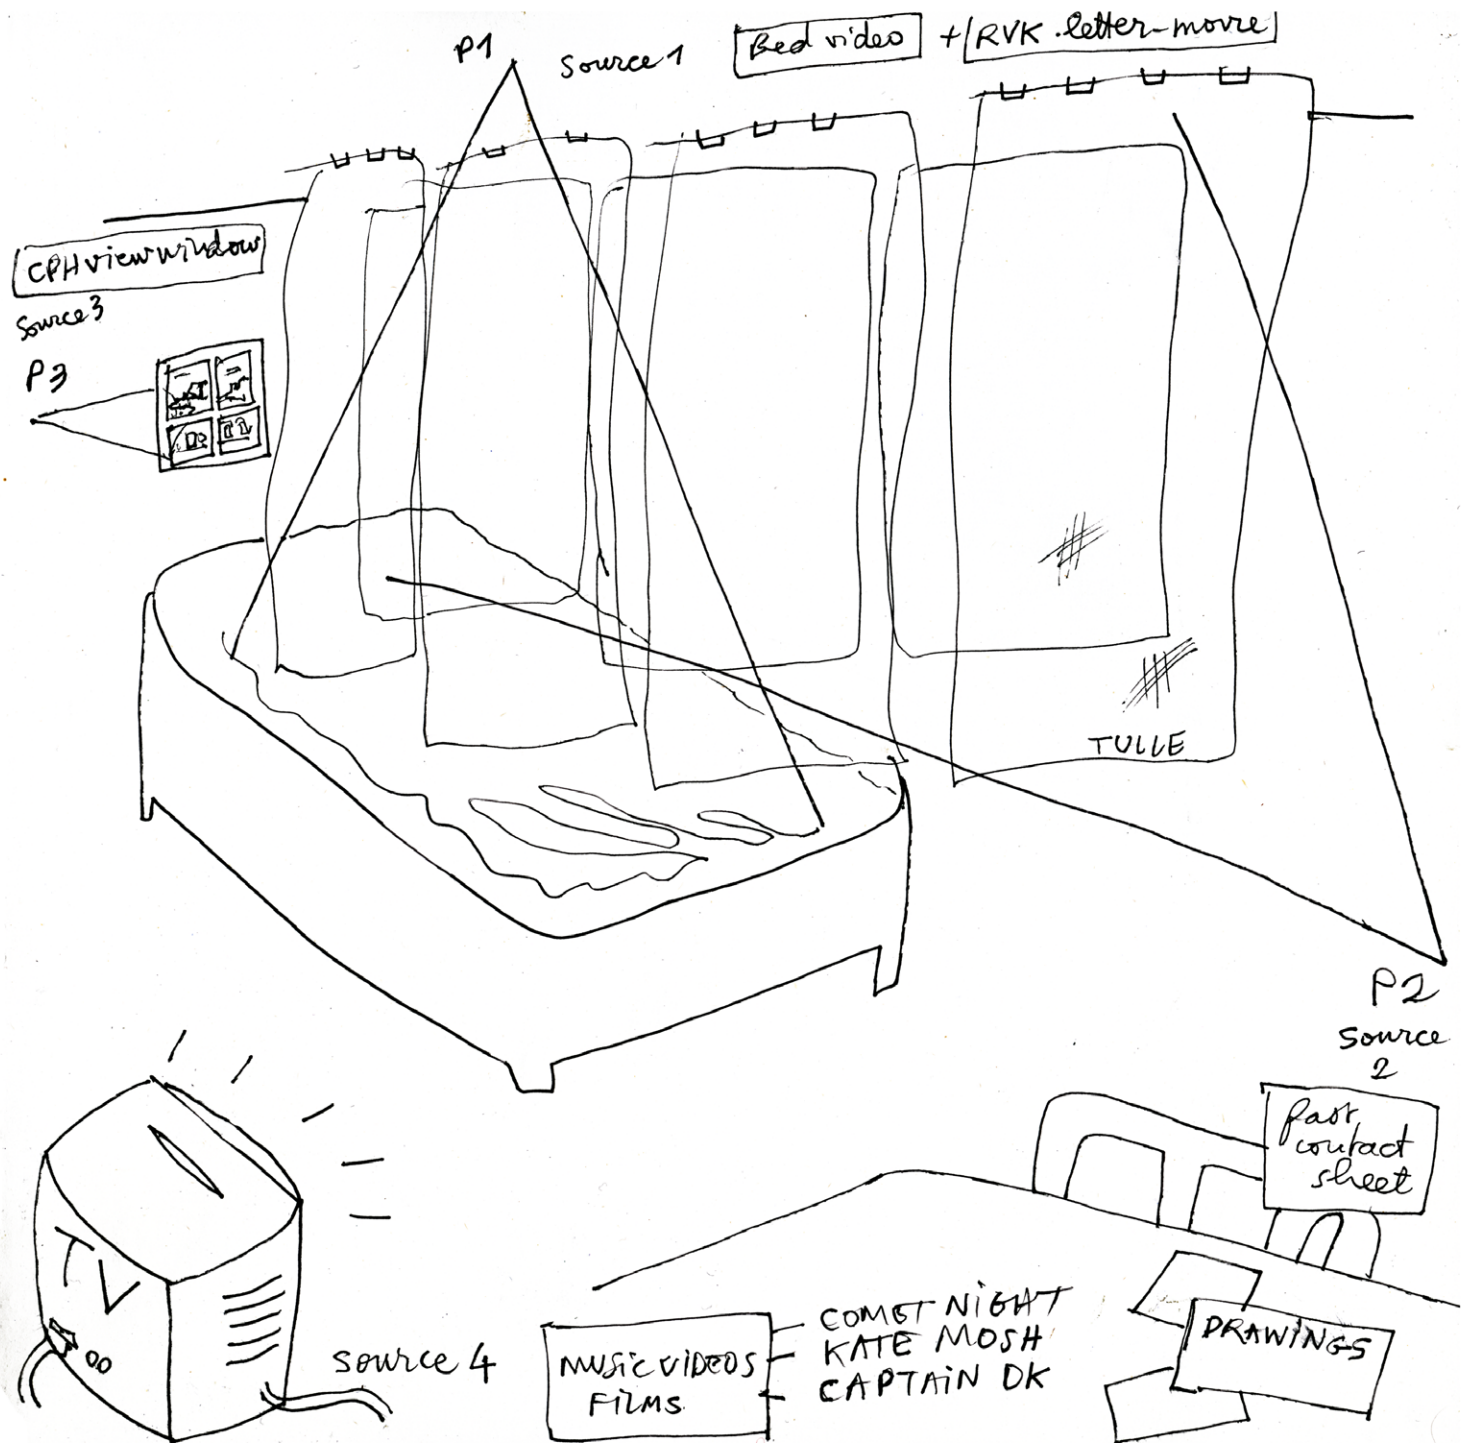 P1
Source 1
Bed video
+ RVK.letter-movie
CPH view window
Source 3
P3
TULLE
P2
Source
2
fast
contact
sheet
TV
source 4
MUSIC VIDEOS
FILMS
COMET NIGHT
KATE MOSH
CAPTAIN DK
DRAWINGS